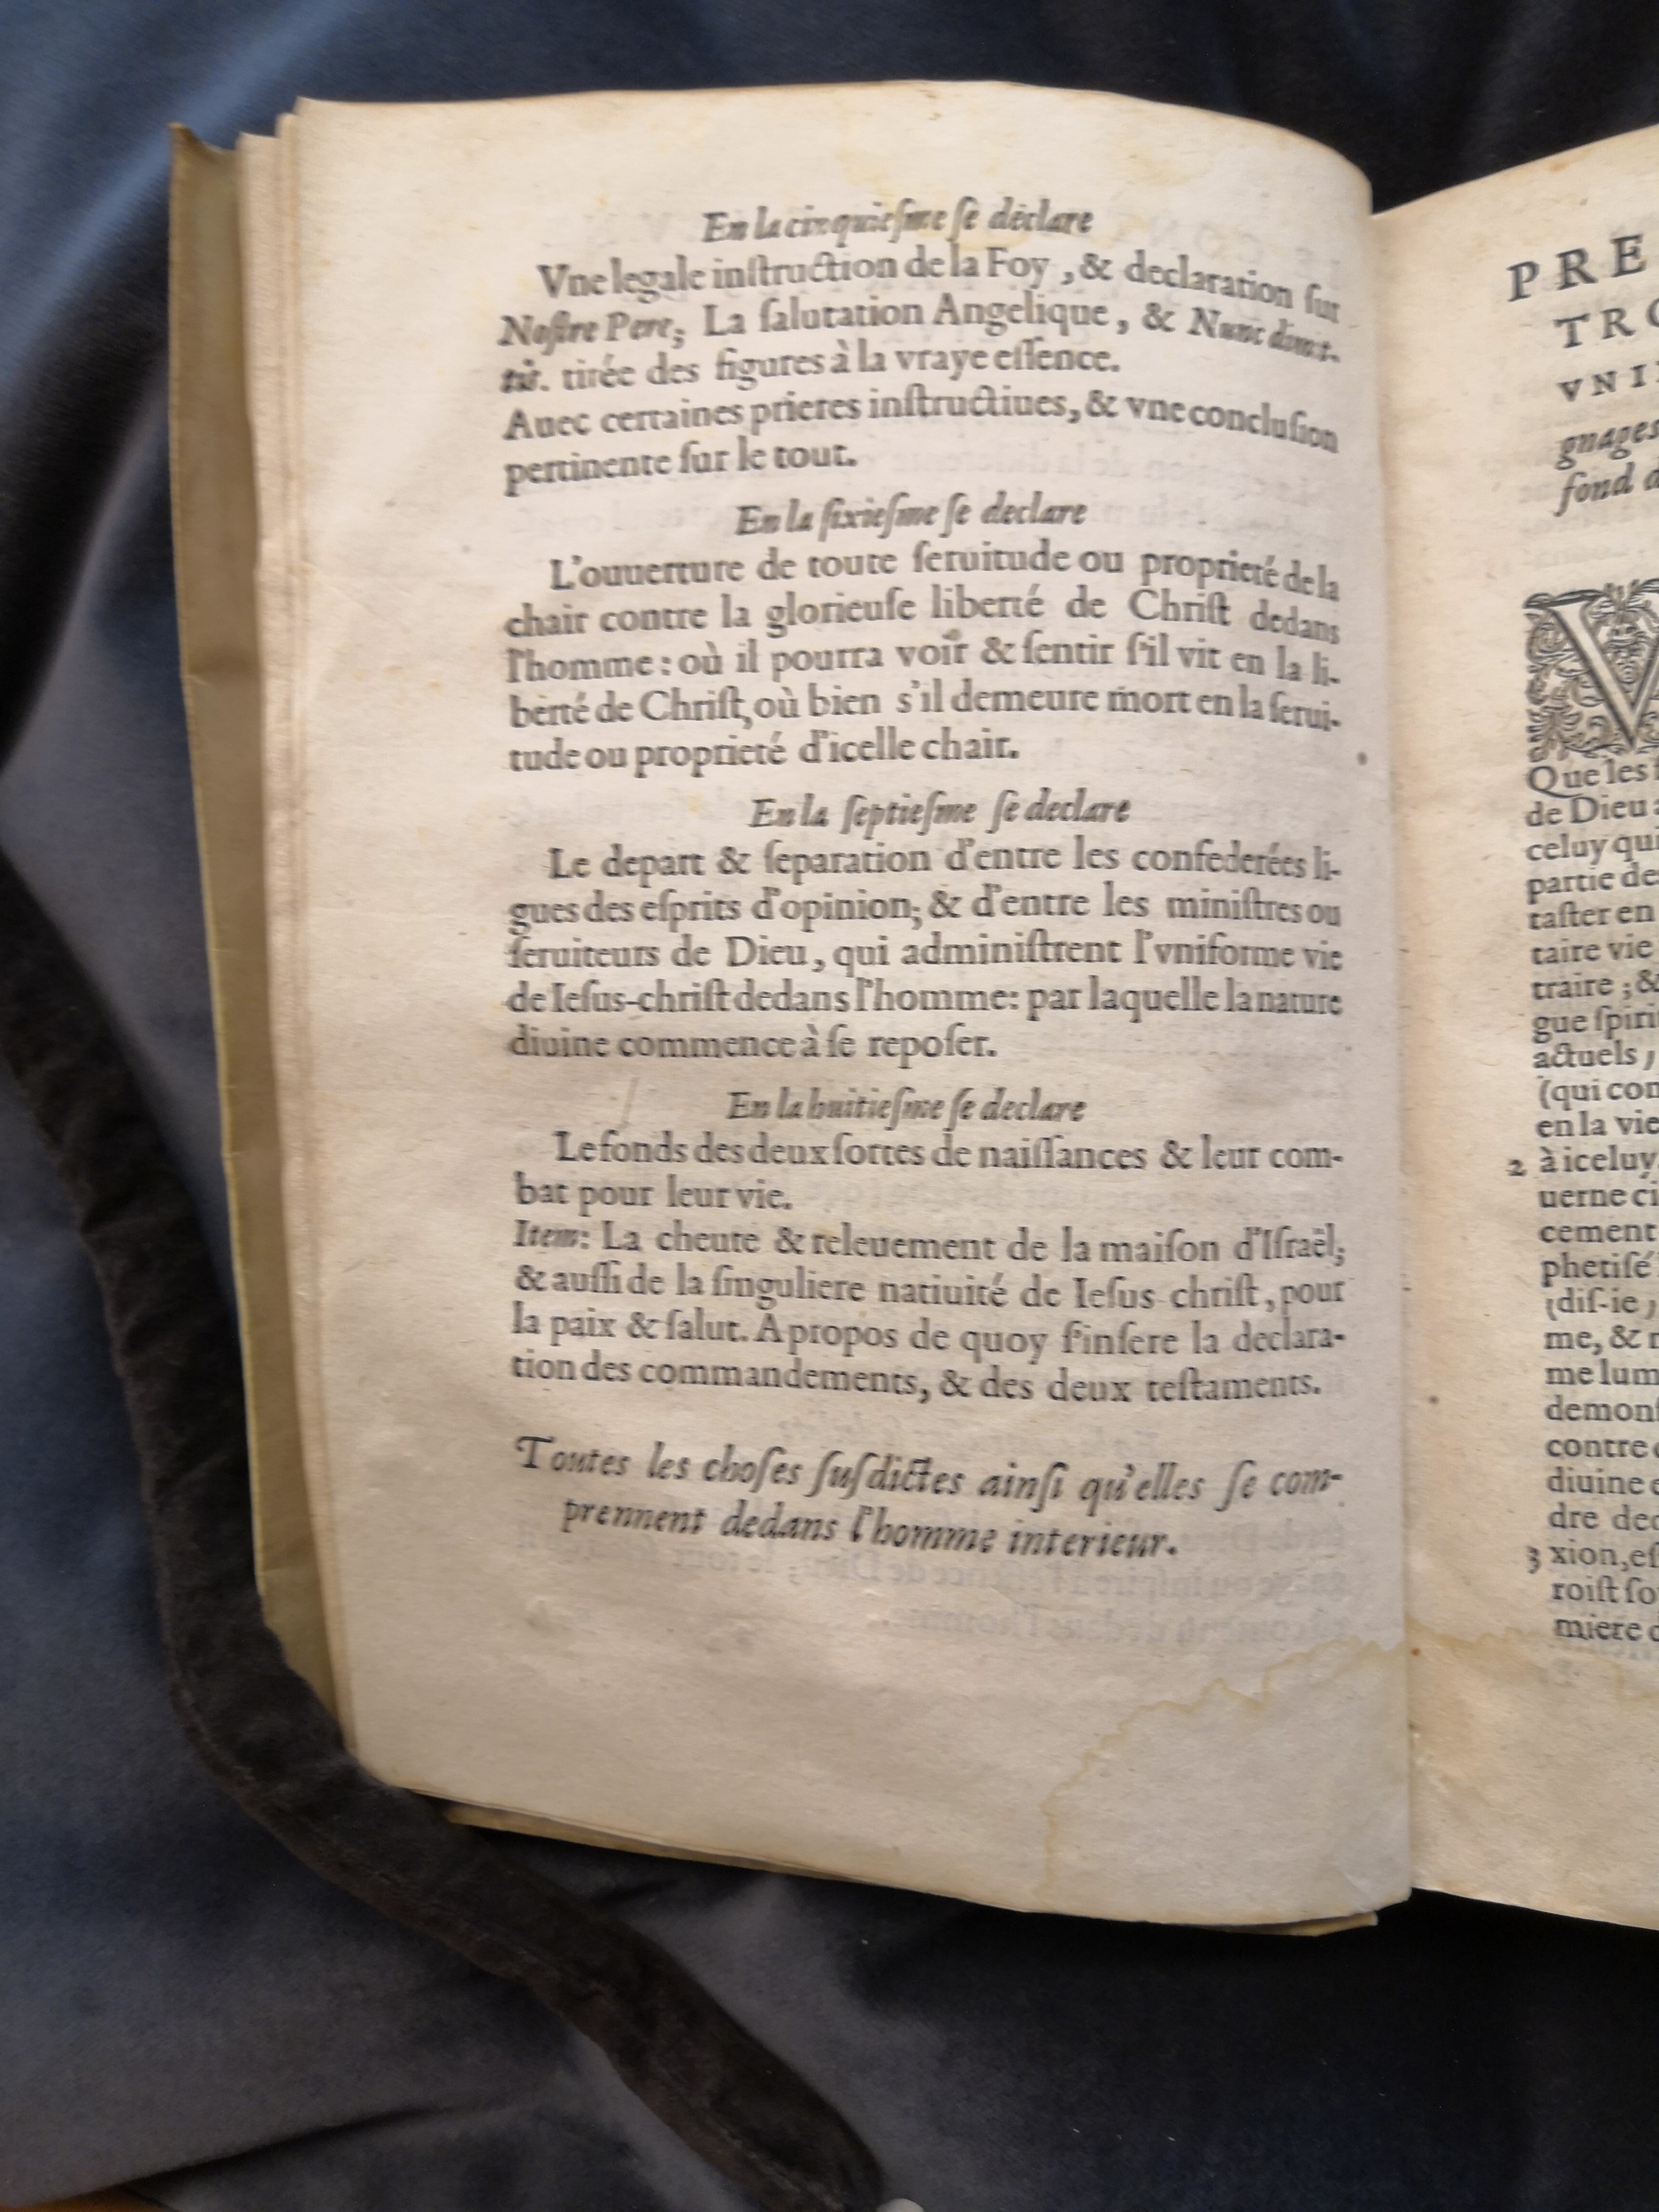 En la cinquieſme ſe declare
Vne legale inſtruction de la Foy, & declaration ſur
Noſtre Pere; La ſalutation Angelique, & Nunc dimit-
tis. tirée des figures à la vraye eſſence.
Auec certaines prieres inſtructiues, & vne concluſion
pertinente ſur le tout.
En la ſixieſme ſe declare
L'ouuerture de toute ſeruitude ou proprieté de la
chair contre la glorieuſe liberté de Chriſt dedans
l'homme: où il pourra voir & ſentir ſ'il vit en la li-
berté de Chriſt, où bien s'il demeure mort en la ſerui-
tude ou proprieté d'icelle chair.
En la ſeptieſme ſe declare
Le depart & ſeparation d'entre les confederées li-
gues des eſprits d'opinion; & d'entre les miniſtres ou
ſeruiteurs de Dieu, qui adminiſtrent l'vniforme vie
de Ieſus-chriſt dedans l'homme: par laquelle la nature
diuine commence à ſe repoſer.
En la huitieſme ſe declare
Le fonds des deux ſortes de naiſſances & leur com-
bat pour leur vie.
Item: La cheute & releuement de la maiſon d'Iſraël;
& auſſi de la ſinguliere natiuité de Ieſus chriſt, pour
la paix & ſalut. A propos de quoy ſ'inſere la declara-
tion des commandements, & des deux teſtaments.
Toutes les choſes ſuſdictes ainſi qu'elles ſe com-
prennent dedans l'homme interieur.
PRE
TRO
VNI
gnages
fond d
V
Que les
de Dieu
celuy qui
partie de
taſter en
taire vie
traire; &
gue ſpiri
actuels,
(qui con
en la vie
2 à iceluy
uerne ci
cement
phetiſé
(diſ-ie,
me, &
me lum
demonſ
contre
diuine
dre dec
3 xion, eſ
roiſt ſo
miere